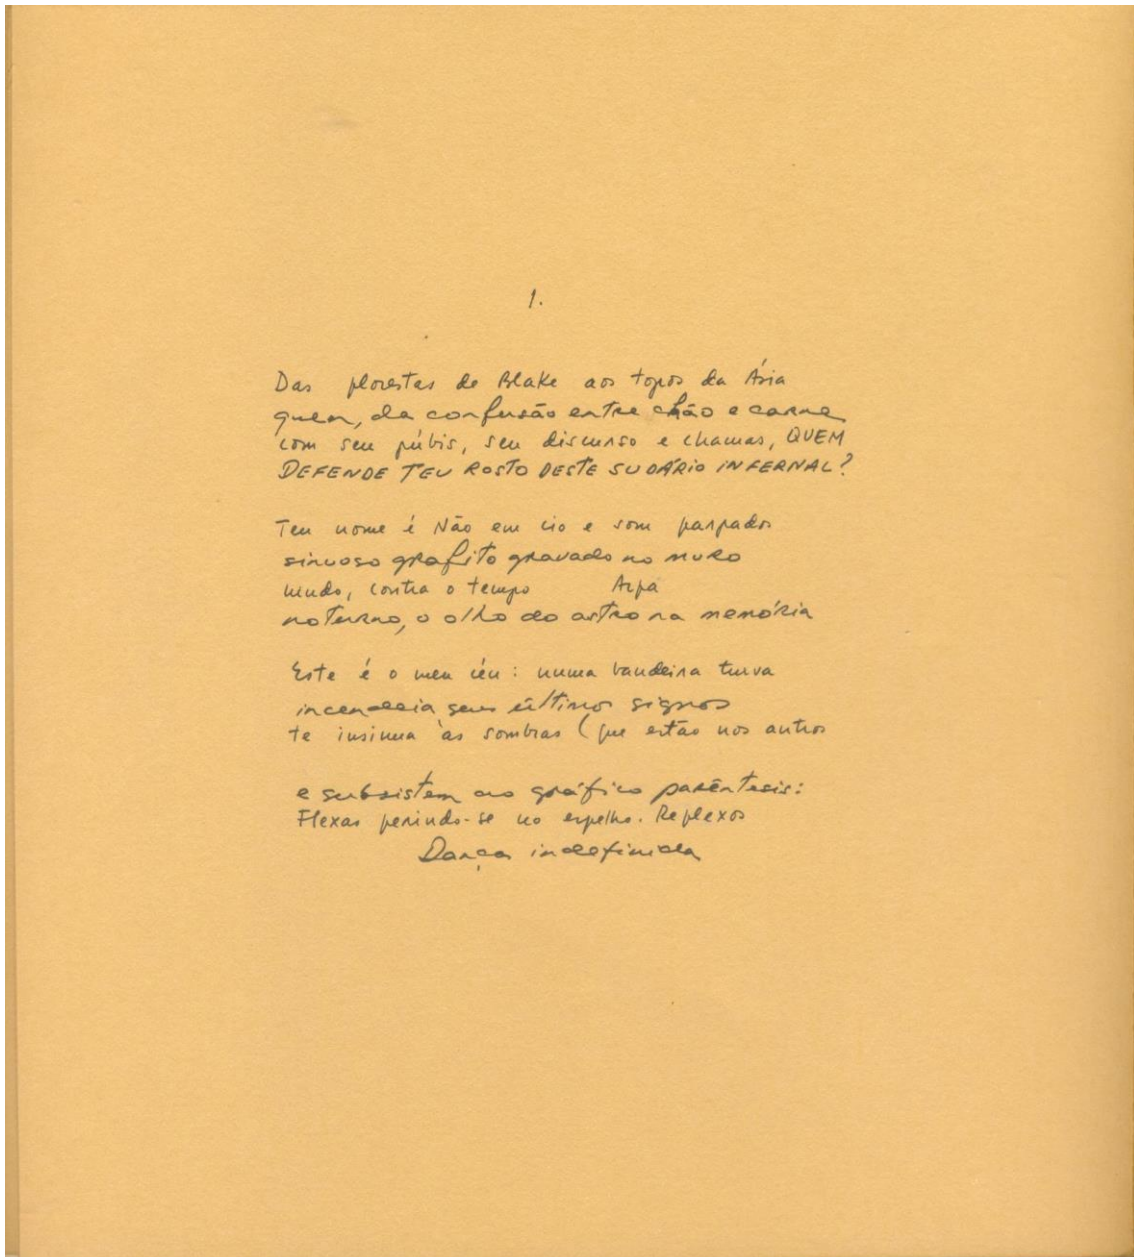 1.
Das florestas de Blake aos topos da Ásia
quem, da confusão entre chão e carne
com seu púbis, seu discurso e chamas, QUEM
DEFENDE TEU ROSTO DESTE SUDÁRIO INFERNAL?
Teu nome é Não em cio e som farpados
sinuoso grafito gravado no muro
mudo, contra o tempo Arpa
noturno, o olho do astro na memória
Este é o meu céu: numa bandeira turva
incendeia seus últimos signos
te insinua às sombras (que estão nos antros
e subsistem ao gráfico parêntesis:
Flexas ferindo-se no espelho. Reflexos
Dança indefinida